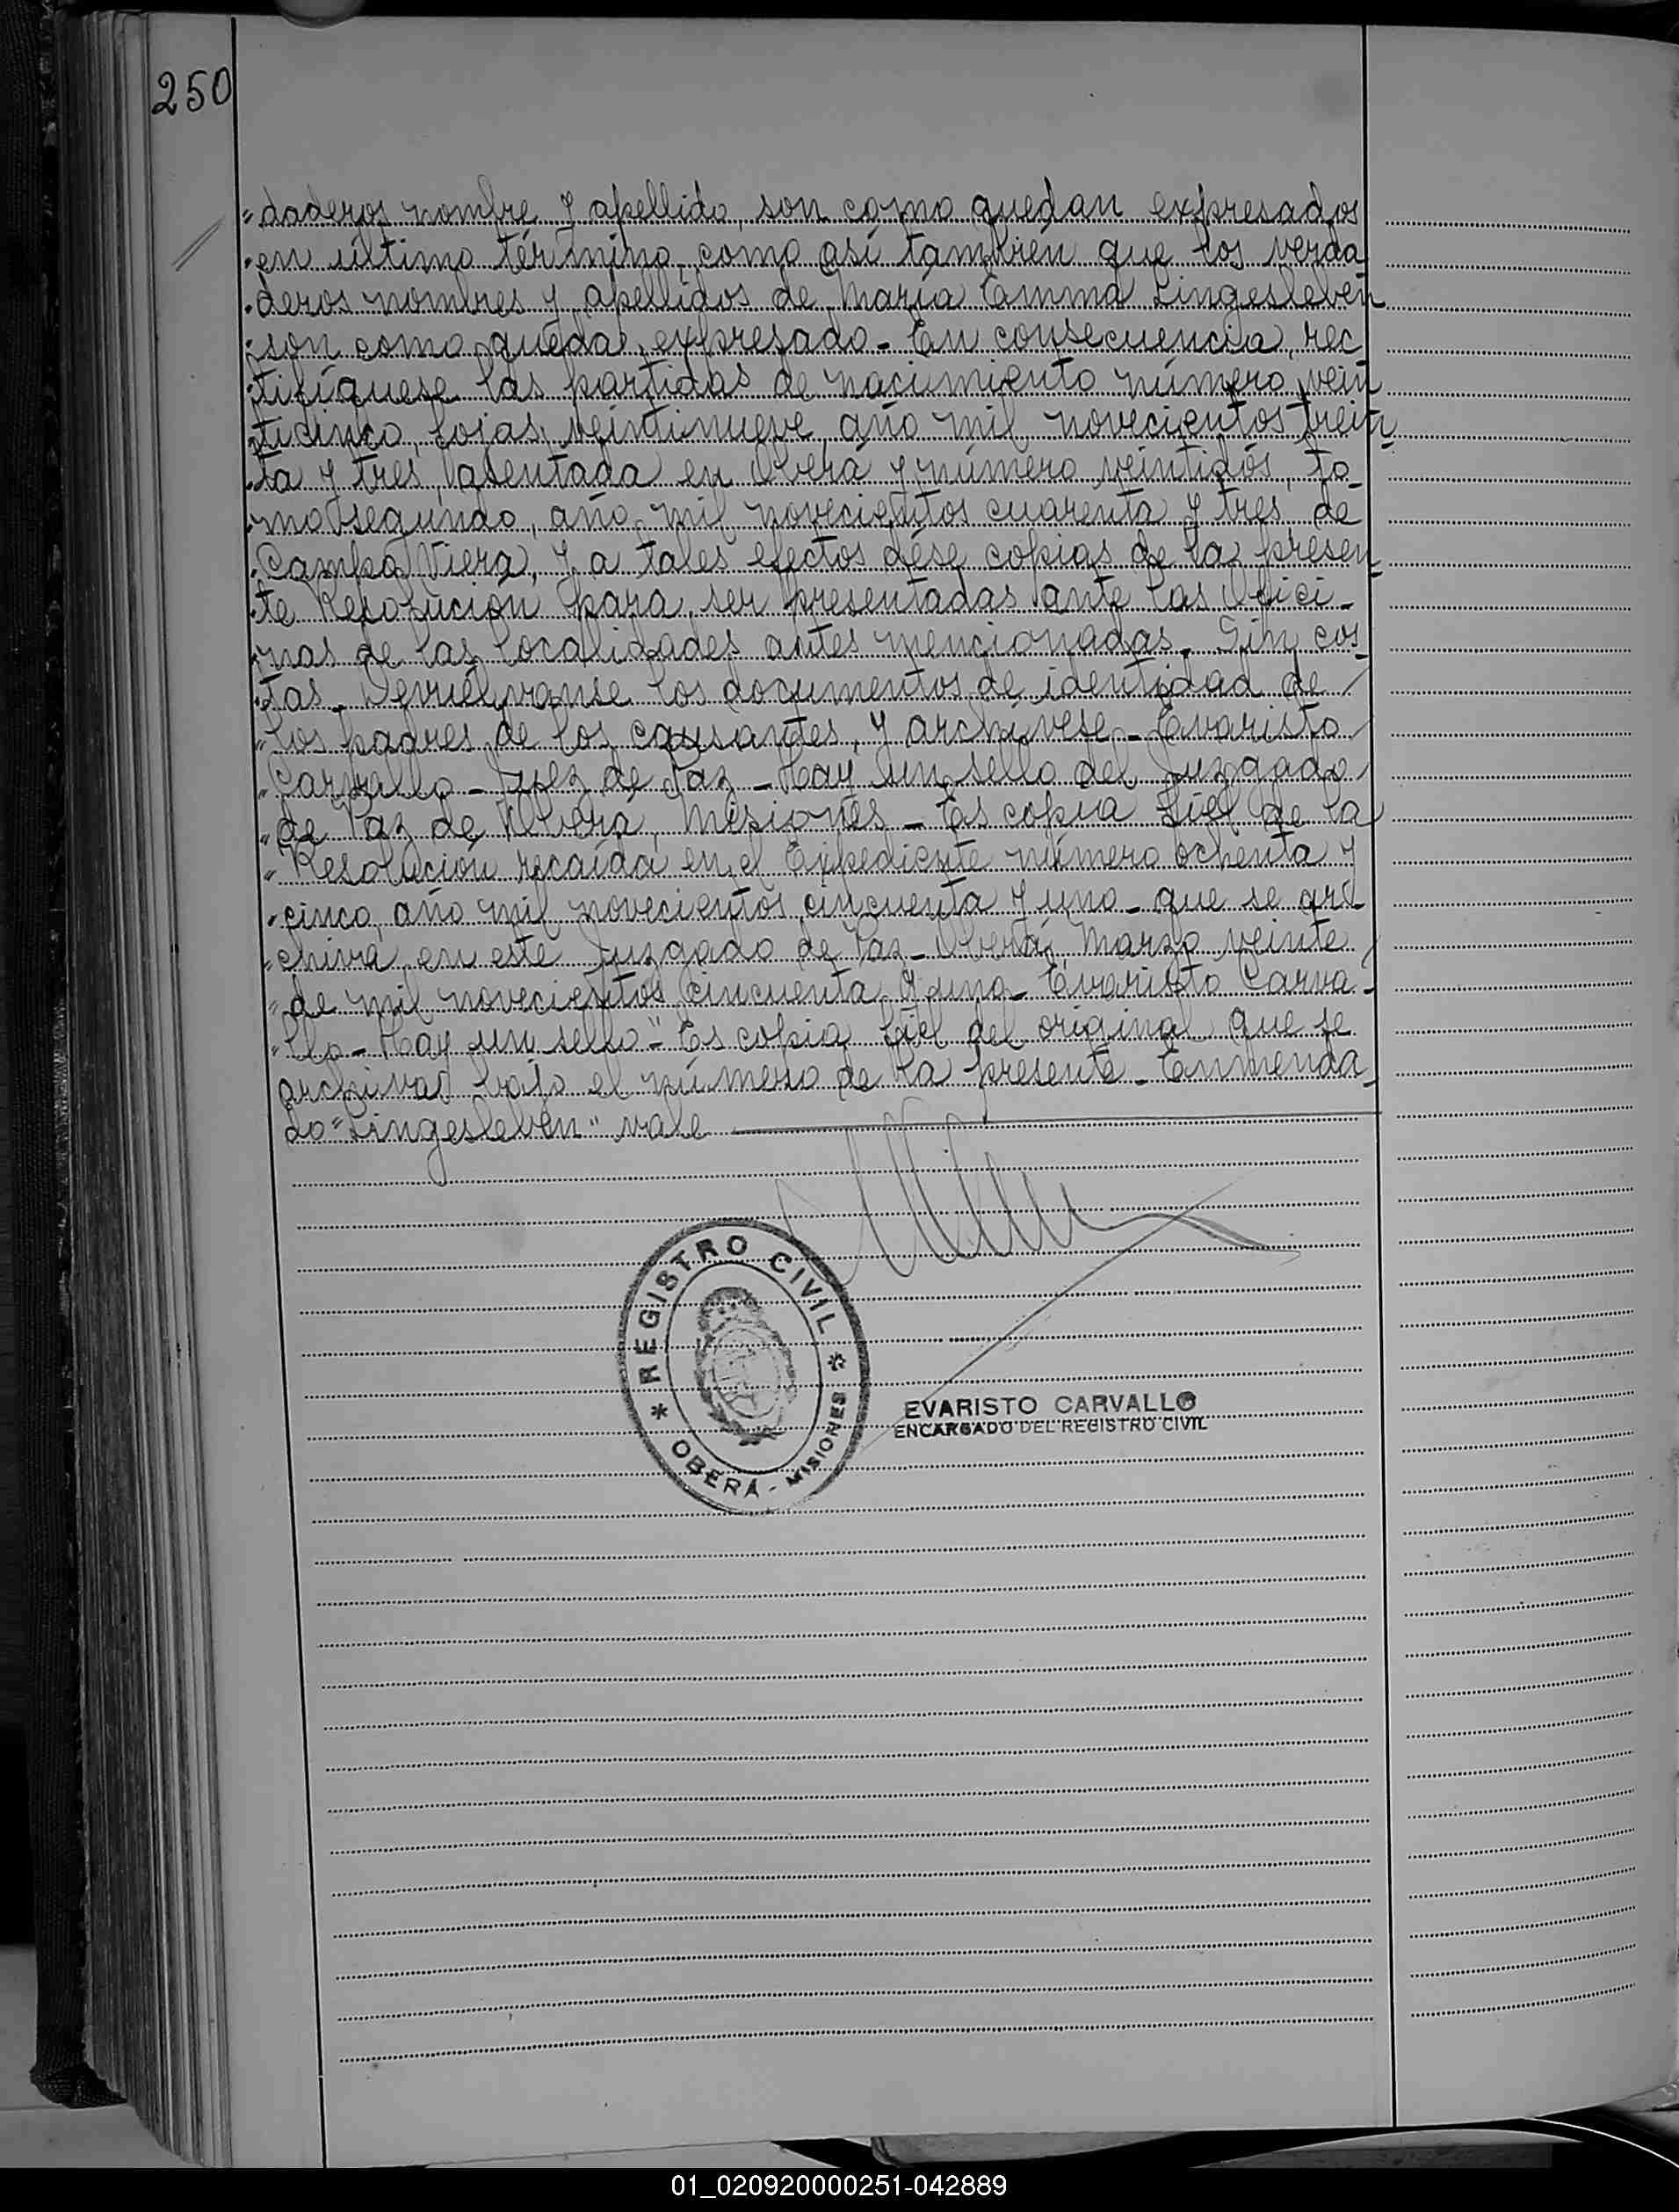 250
"daderos nombre y apellido, son como quedan expresados
"en último término, como así también que los verda-
"deros nombres y apellidos de María Emma Lingesleben
"son como queda expresado - En consecuencia, rec-
"tifíquese las partidas de nacimiento número vein-
"ticinco, fojas veintinueve, año mil novecientos trein-
"ta y tres, asentada en Oberá y número veintidós, to-
"mo segundo, año mil novecientos cuarenta y tres de
"Campo Viera, y a tales efectos dése copias de la presen-
"te Resolución para ser presentadas ante las Ofici-
"nas de las localidades antes mencionadas. Sin cos-
"tas. Devuélvanse los documentos de identidad de
"los padres de los causantes, y archívese - Evaristo
"Carvallo - Juez de Paz - Hay un sello del Juzgado
"de Paz de Oberá, Misiones - Es copia fiel de la
"Resolución recaída en el Expediente número ochenta y
"cinco, año mil novecientos cincuenta y uno - que se ar-
"chiva en este Juzgado de Paz - Oberá, Marzo veinte
"de mil novecientos cincuenta y uno - Evaristo Carva-
"llo - Hay un sello" - Es copia fiel del original que se
archiva bajo el número de la presente - Enmenda-
do "Lingesleben" vale
* REGISTRO CIVIL *
OBERÁ - MISIONES
EVARISTO CARVALLO
ENCARGADO DEL REGISTRO CIVIL
01_020920000251-042889